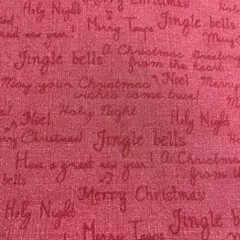 Holy Night Jingle bells
Merry A Christmas
Jingle bells from the heart
Noel
May your Christmas
wishes come true!
Holy Night
Noel Jingle bells
Merry Christmas!
Have a great new year! A Christmas
bells from the
Merry Christmas
Holy Night Jingle bells